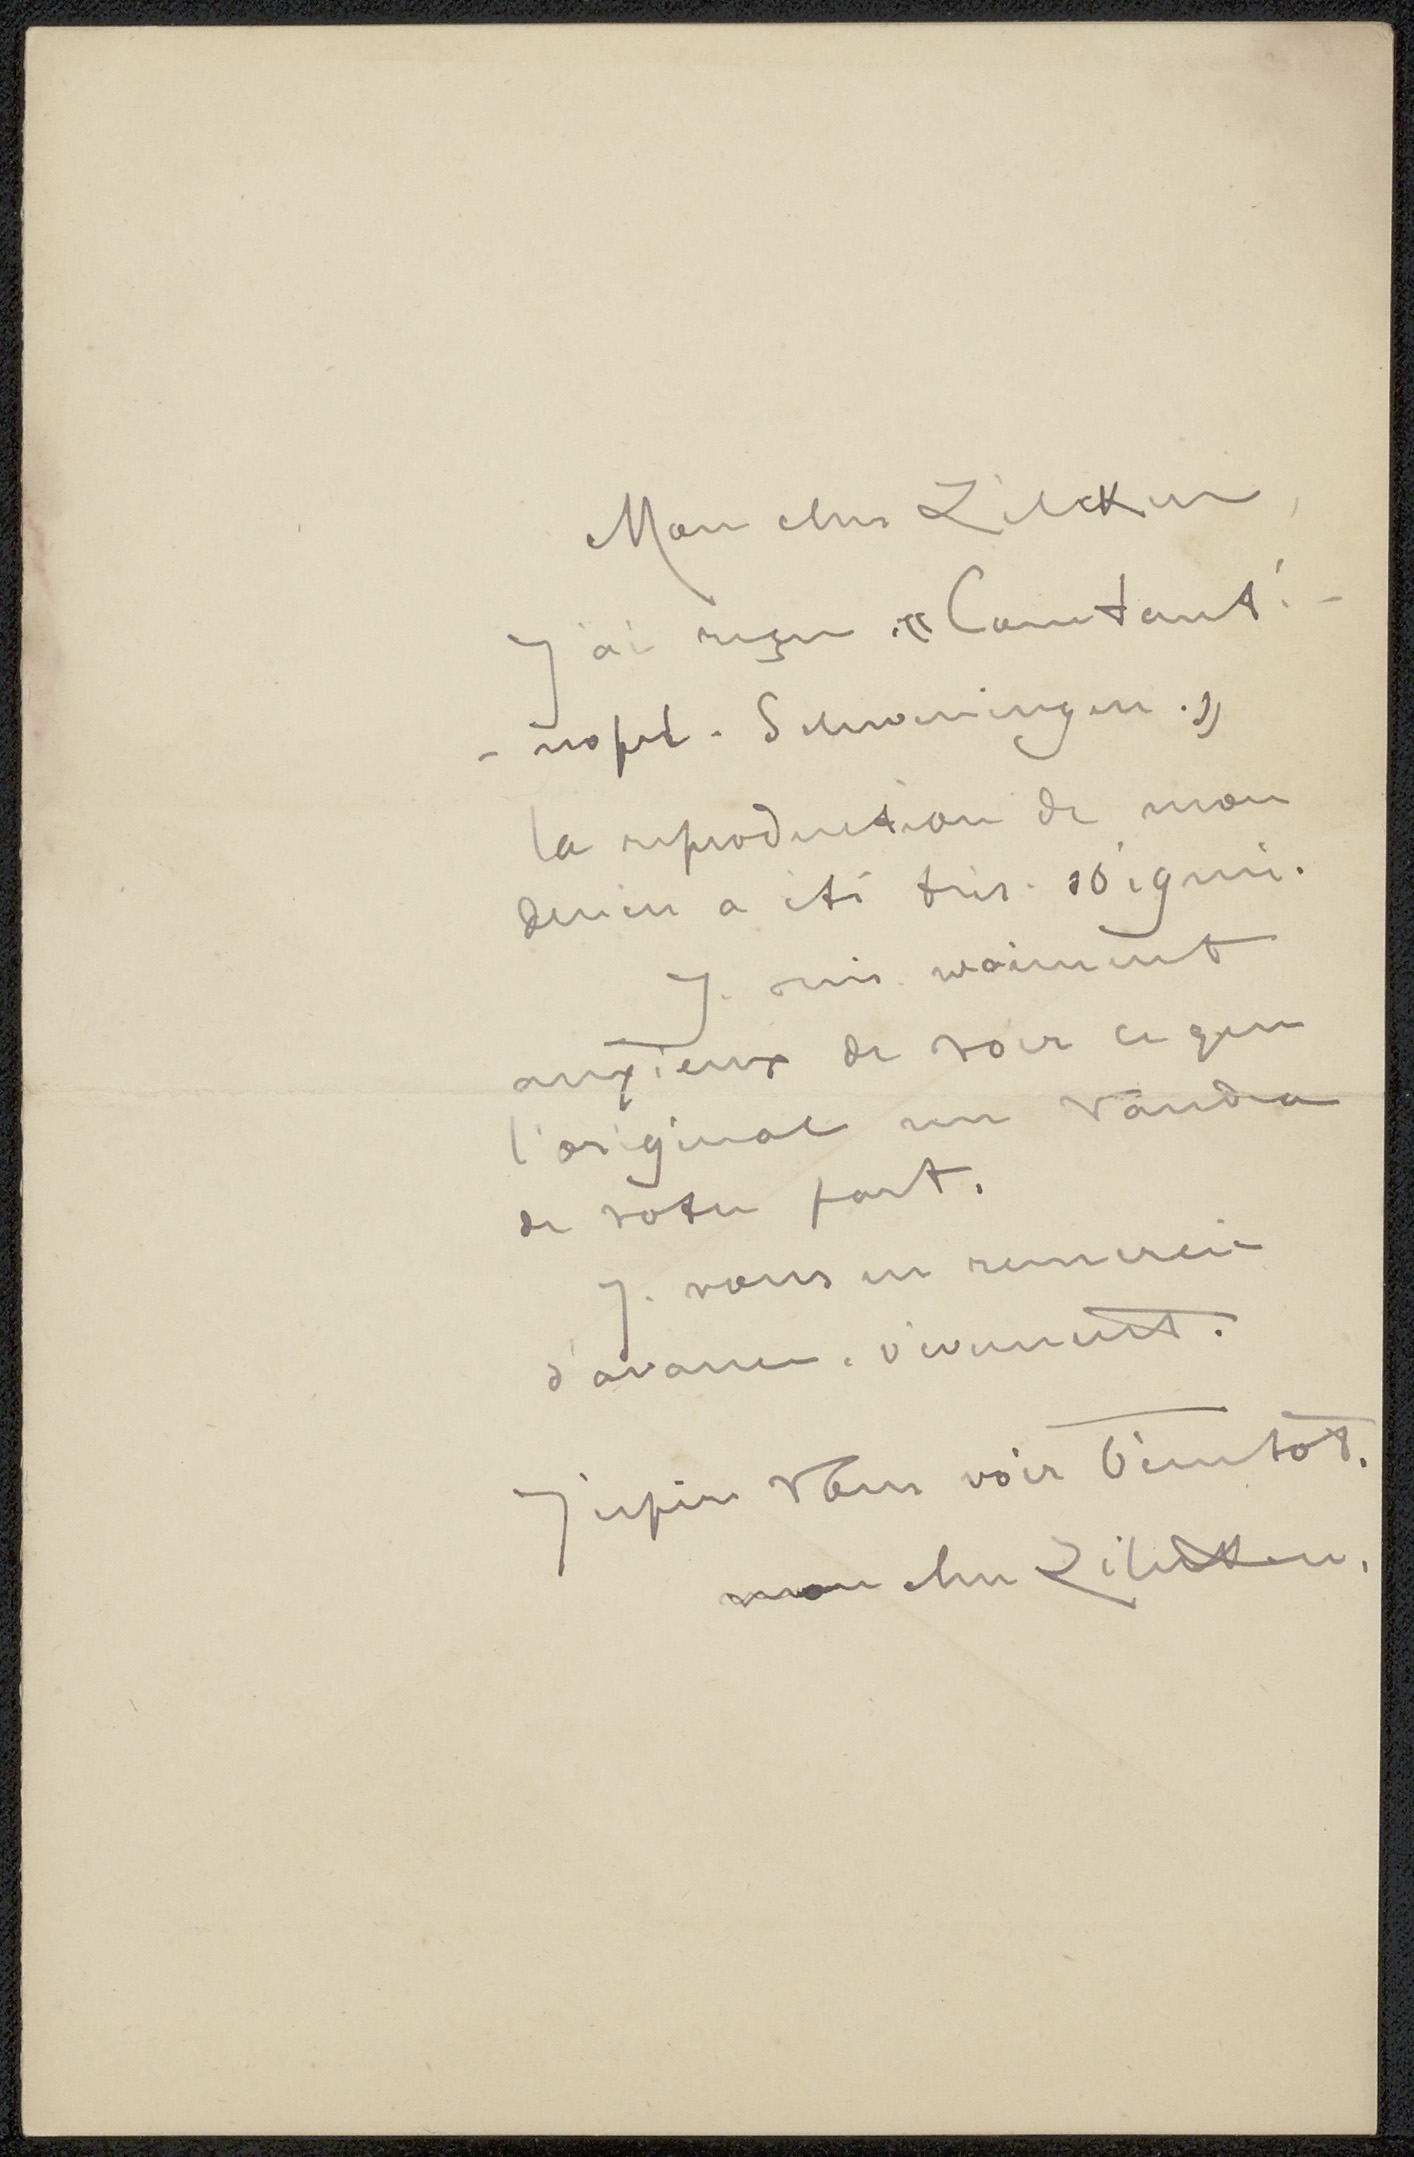 Mon cher Zilcken,
J'ai reçu « Constanti-
- nople. Scheveningen. »
la reproduction de mon
dessin a été très. soignée.
Je suis vraiment
anxieux de voir ce que
l'original me vaudra
de votre part.
Je vous en remercie
d'avance. vivement.
J'espère vous voir bientôt.
mon cher Zilcken.